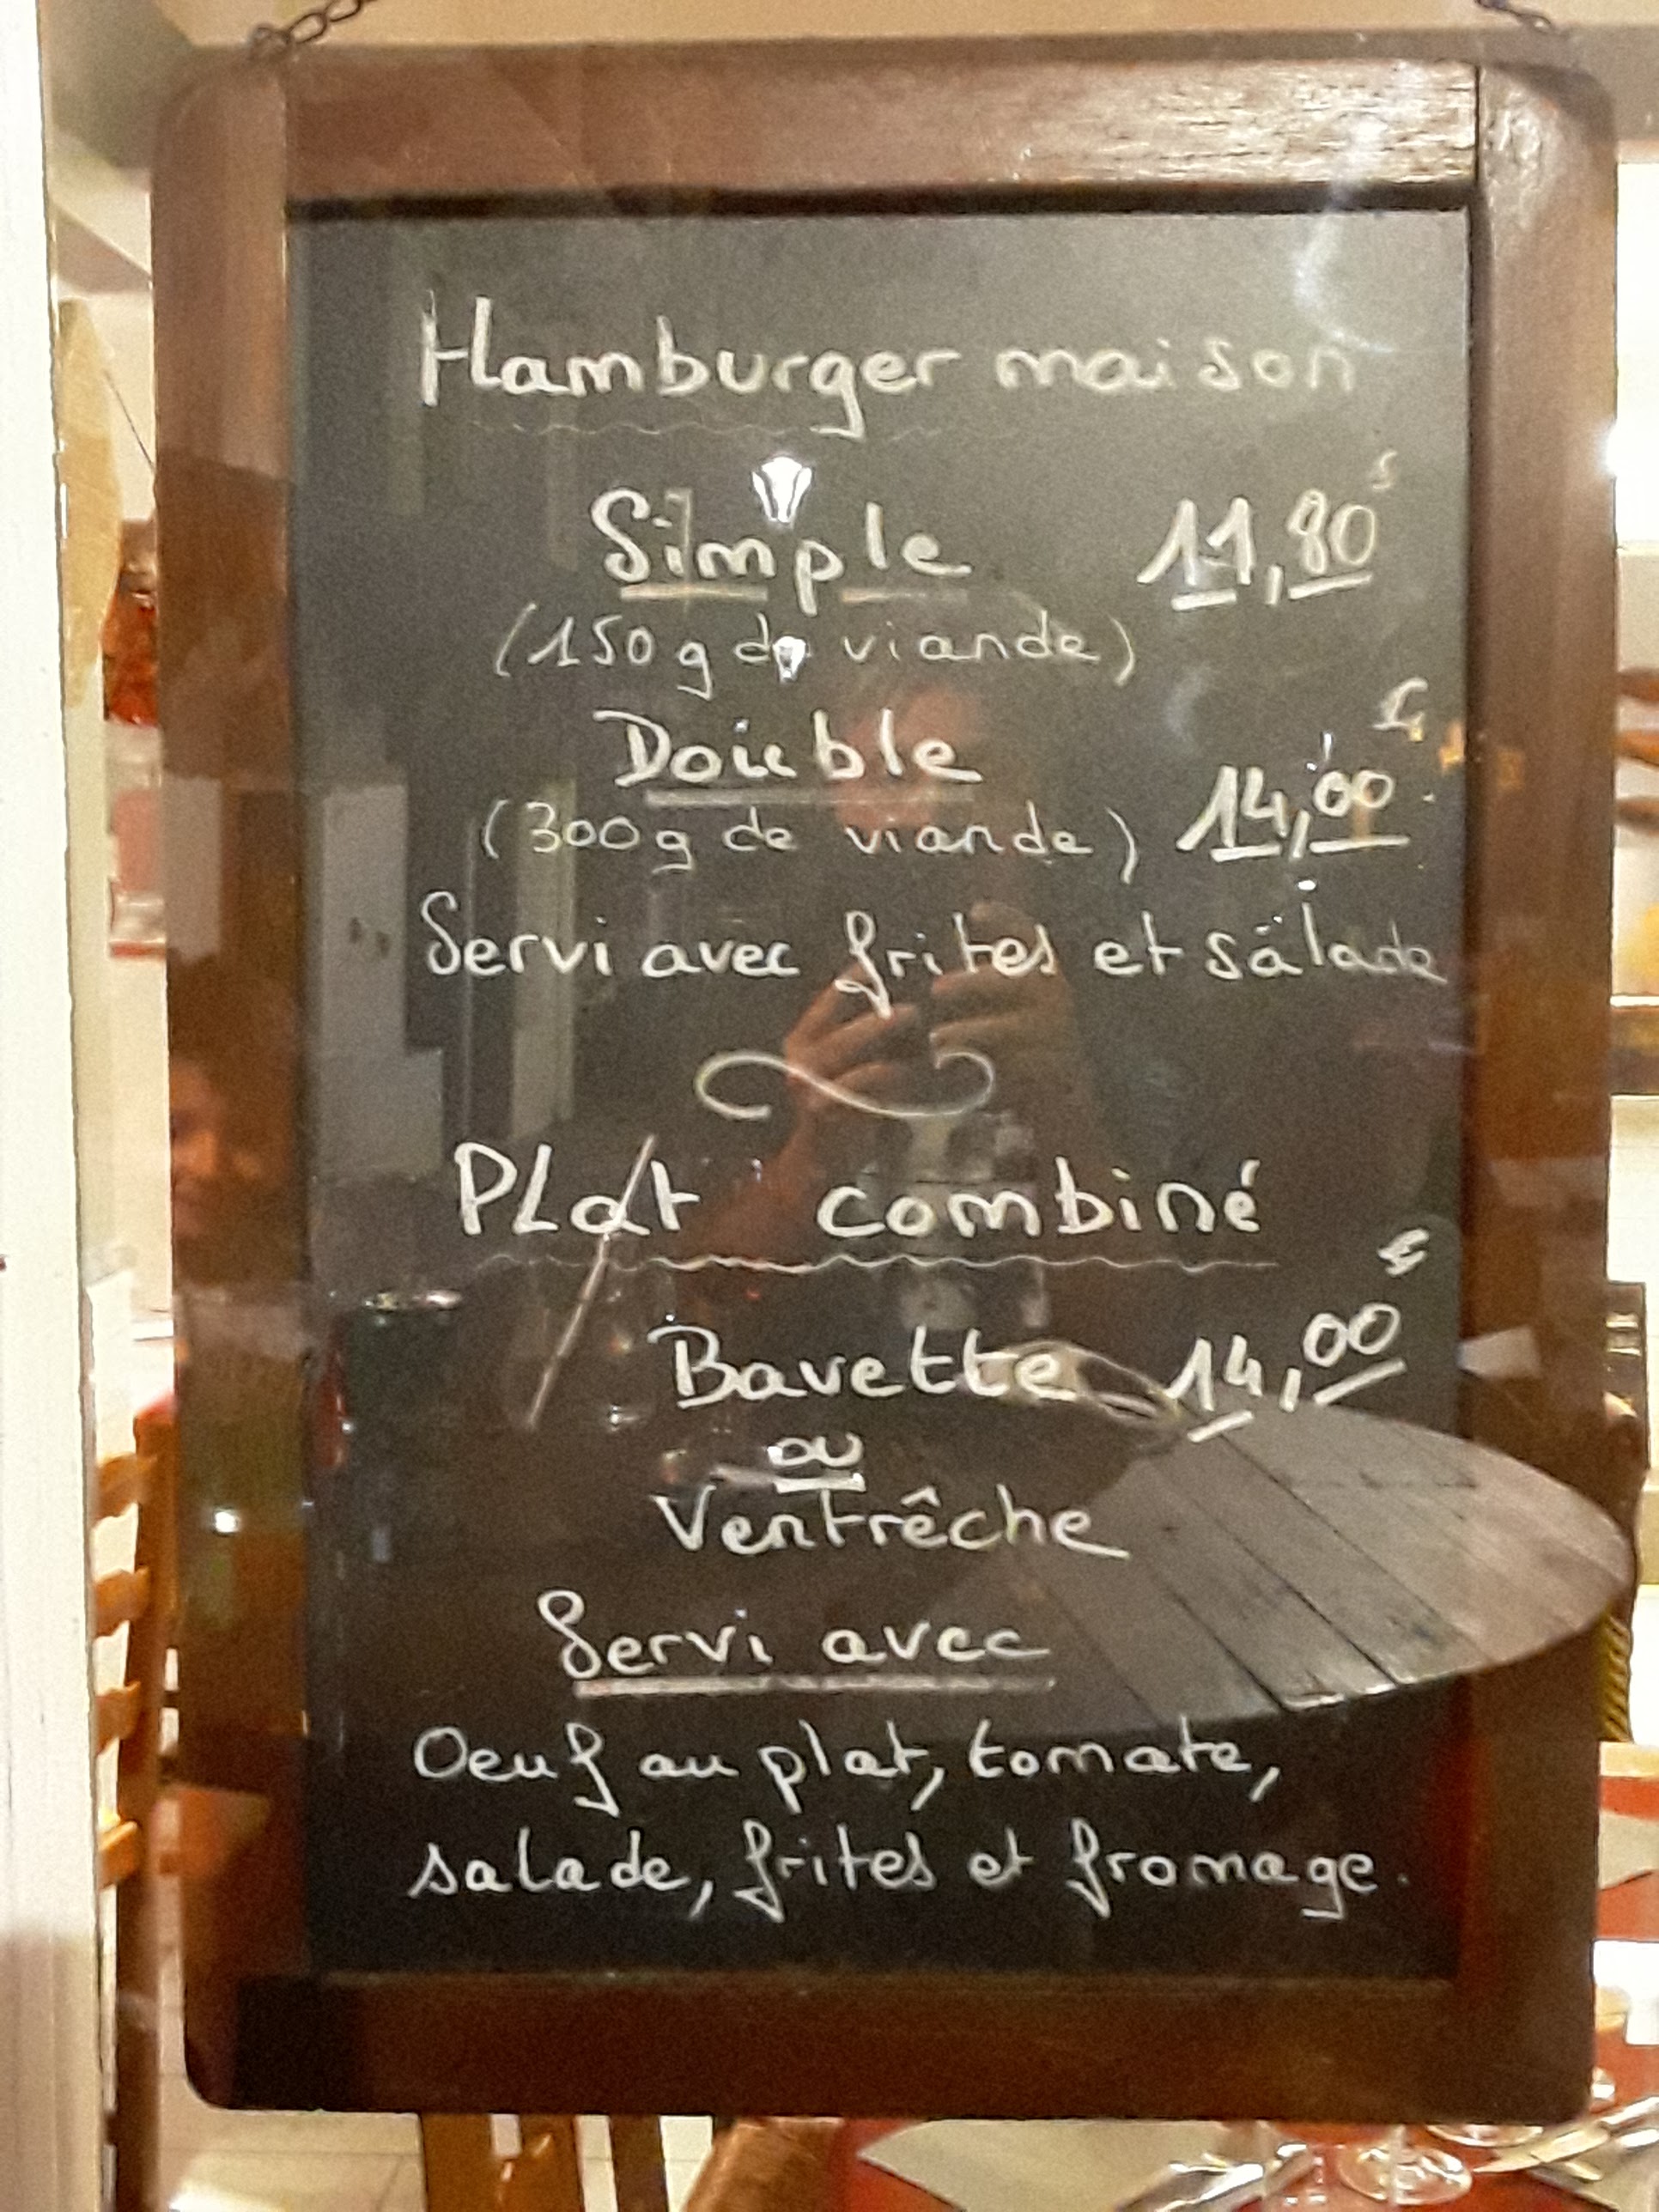 Hamburger maison
Simple 11,80€
(150g de viande)
Double
(300g de viande) 14,00€
Servi avec frites et salade
Plat combiné
Bavette 14,00€
ou
Ventrêche
Servi avec
Oeuf au plat, tomate,
salade, frites et fromage.